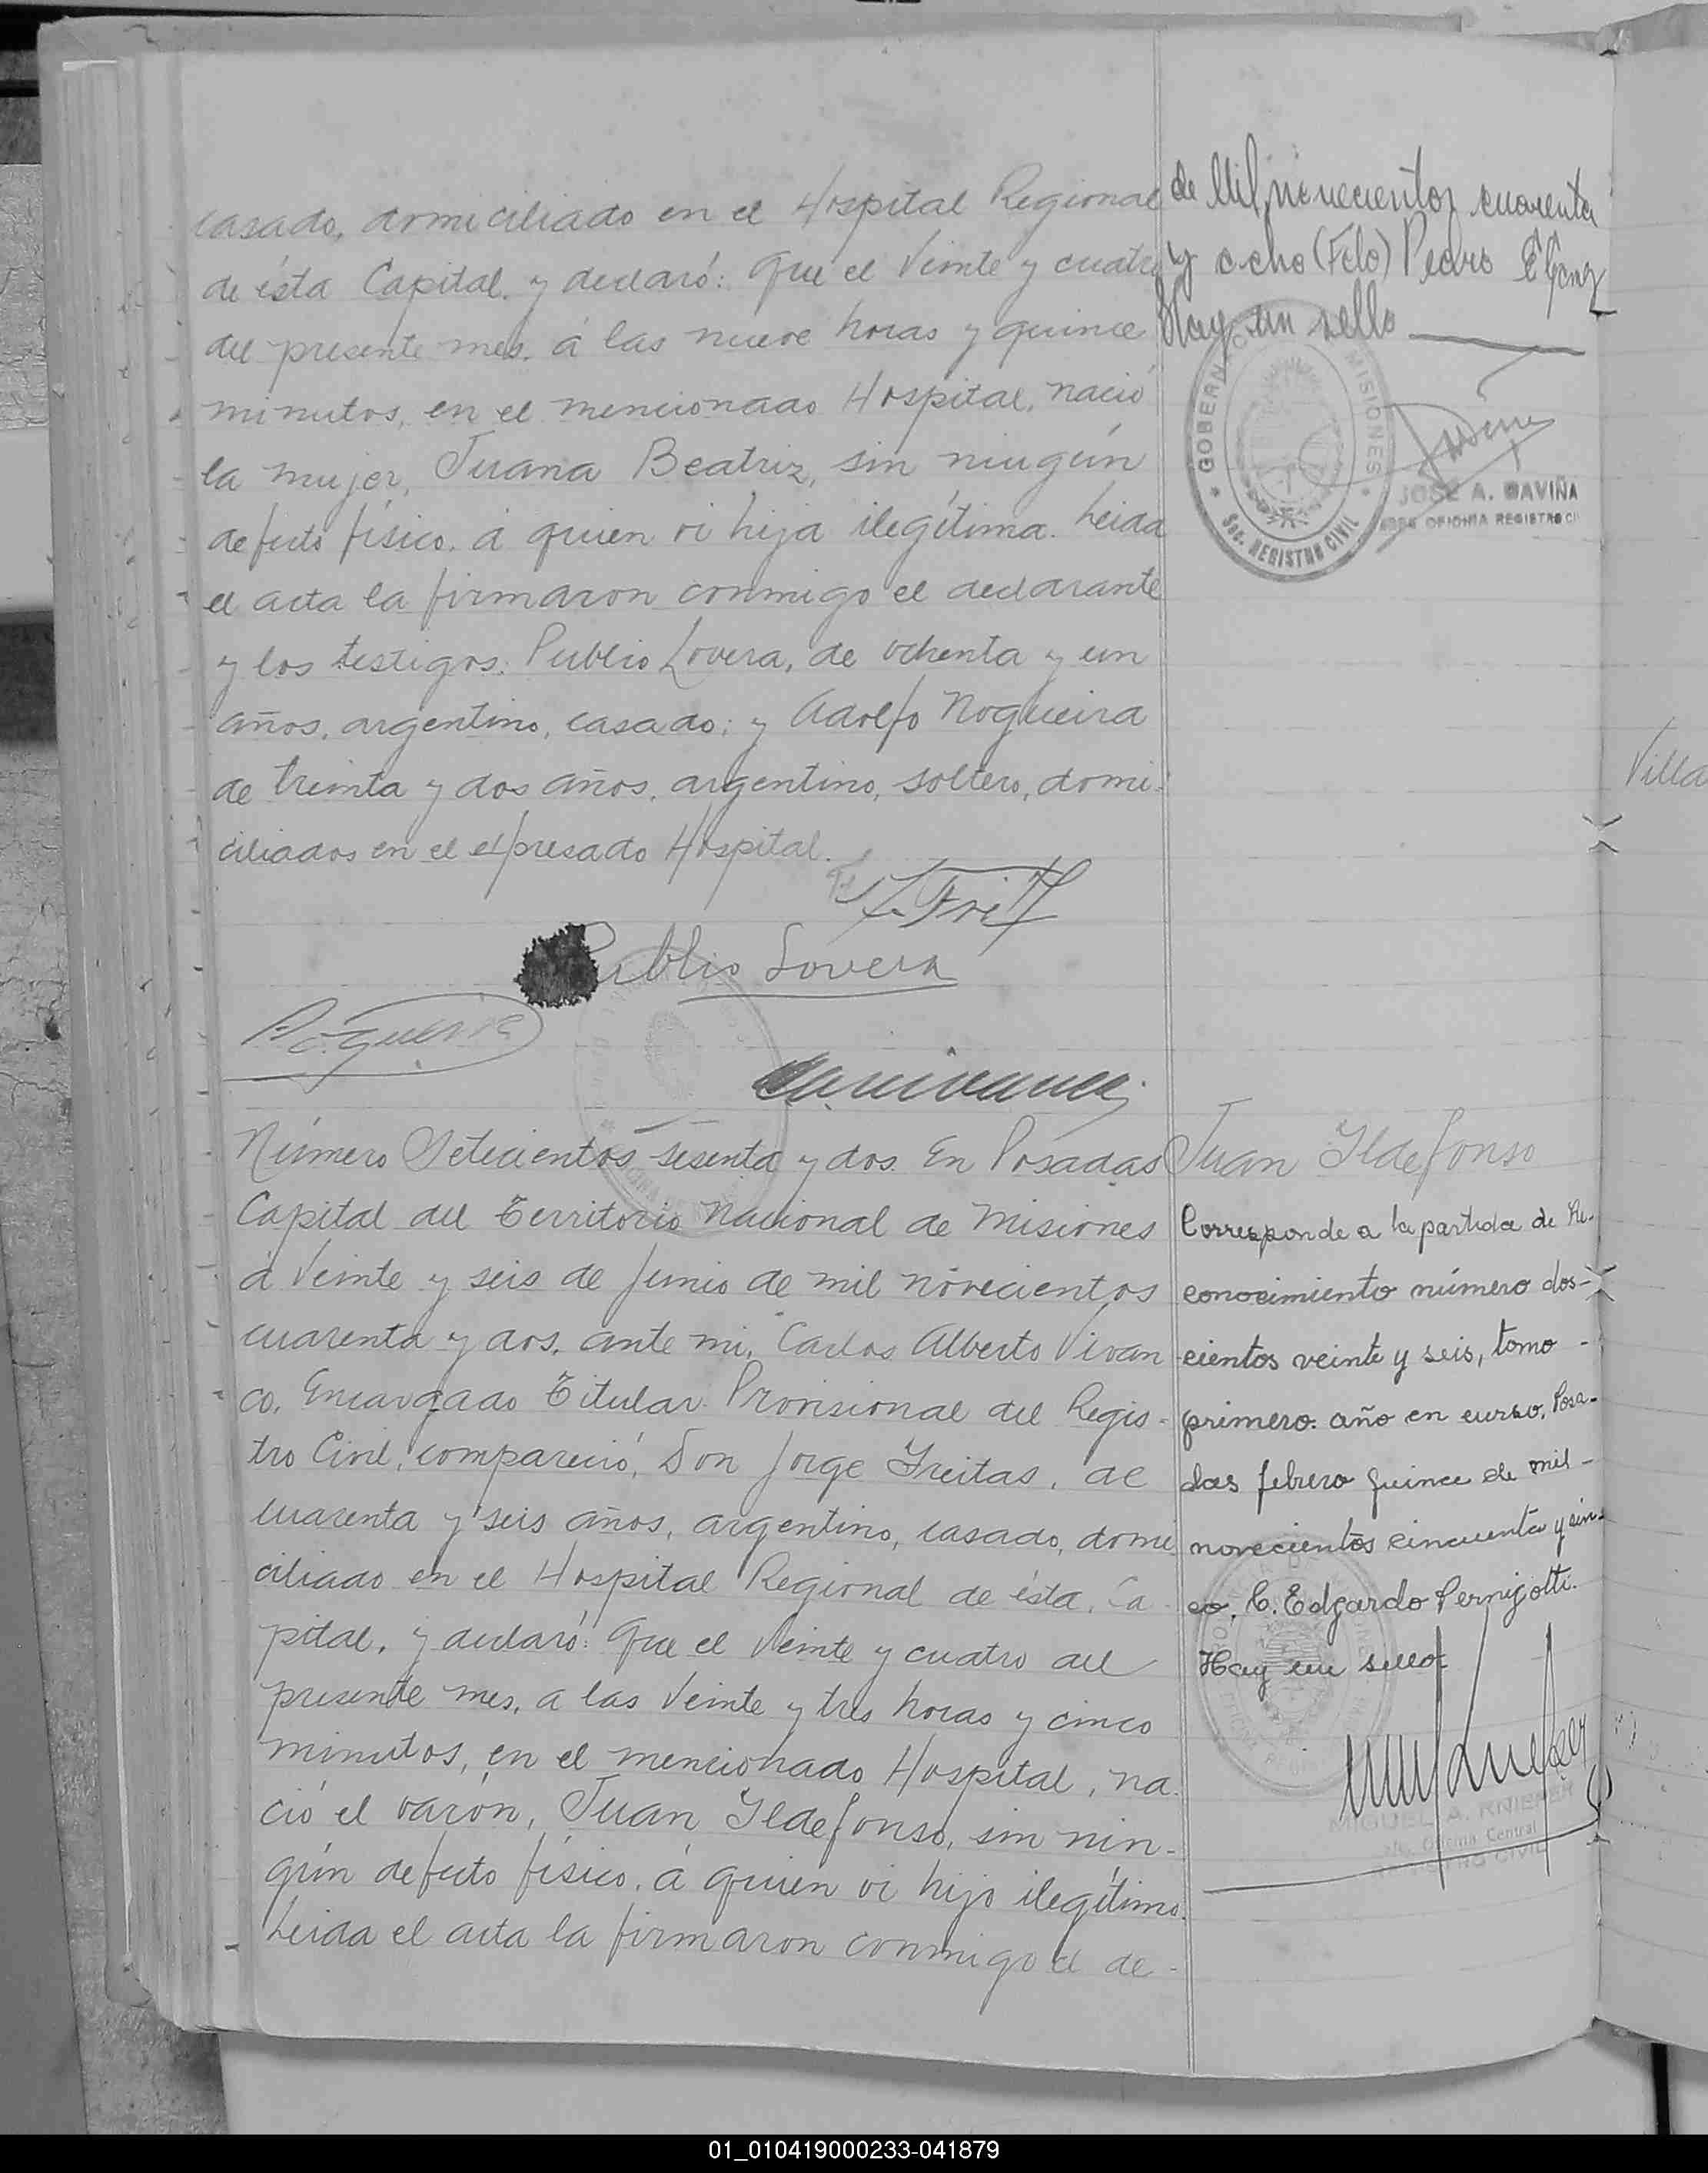 casado, domiciliado en el Hospital Regional
de ésta Capital, y declaró: Que el Veinte y cuatro
del presente mes, á las nueve horas y quince
minutos, en el mencionado Hospital, nació
la mujer, Juana Beatriz, sin ningún
defecto físico, á quien vi hija ilegítima. Leida
el acta la firmaron conmigo el declarante
y los testigos: Publio Lovera, de ochenta y un
años, argentino, casado; y Adolfo Nogueira
de treinta y dos años, argentino, soltero, domi-
ciliados en el expresado Hospital.
Publio Lovera
de Mil novecientos cuarenta
y ocho (Fdo) Pedro
Hay un sello
GOBERN MISIONES
Sec. REGISTRO CIVIL
JOSE A. GAVIÑA
JEFE OFICINA REGISTRO CI
Número Setecientos sesenta y dos. En Posadas
Capital del Territorio Nacional de Misiones
á Veinte y seis de Junio de mil novecientos
cuarenta y dos, ante mi, Carlos Alberto Vivan
co, Encargado Titular Provisional del Regis-
tro Civil, compareció, Don Jorge Freitas, de
cuarenta y seis años, argentino, casado, domi
ciliado en el Hospital Regional de ésta, Ca-
pital, y declaró: Que el Veinte y cuatro del
presente mes, a las Veinte y tres horas y cinco
minutos, en el mencionado Hospital, na-
ció el varón, Juan Ildefonso, sin nin-
gún defecto físico, á quien vi hijo ilegítimo.
Leida el acta la firmaron conmigo el de-
Juan Ildefonso
Corresponde a la partida de Re-
conocimiento número dos-
cientos veinte y seis, tomo -
primero. año en curso. Posa-
das febrero quince de mil -
novecientos cincuenta y cin-
co. C. Edgardo Pernigotti.
Hay un sello:
MIGUEL A. KNIEPER
Oficina Central
Villa
01_010419000233-041879